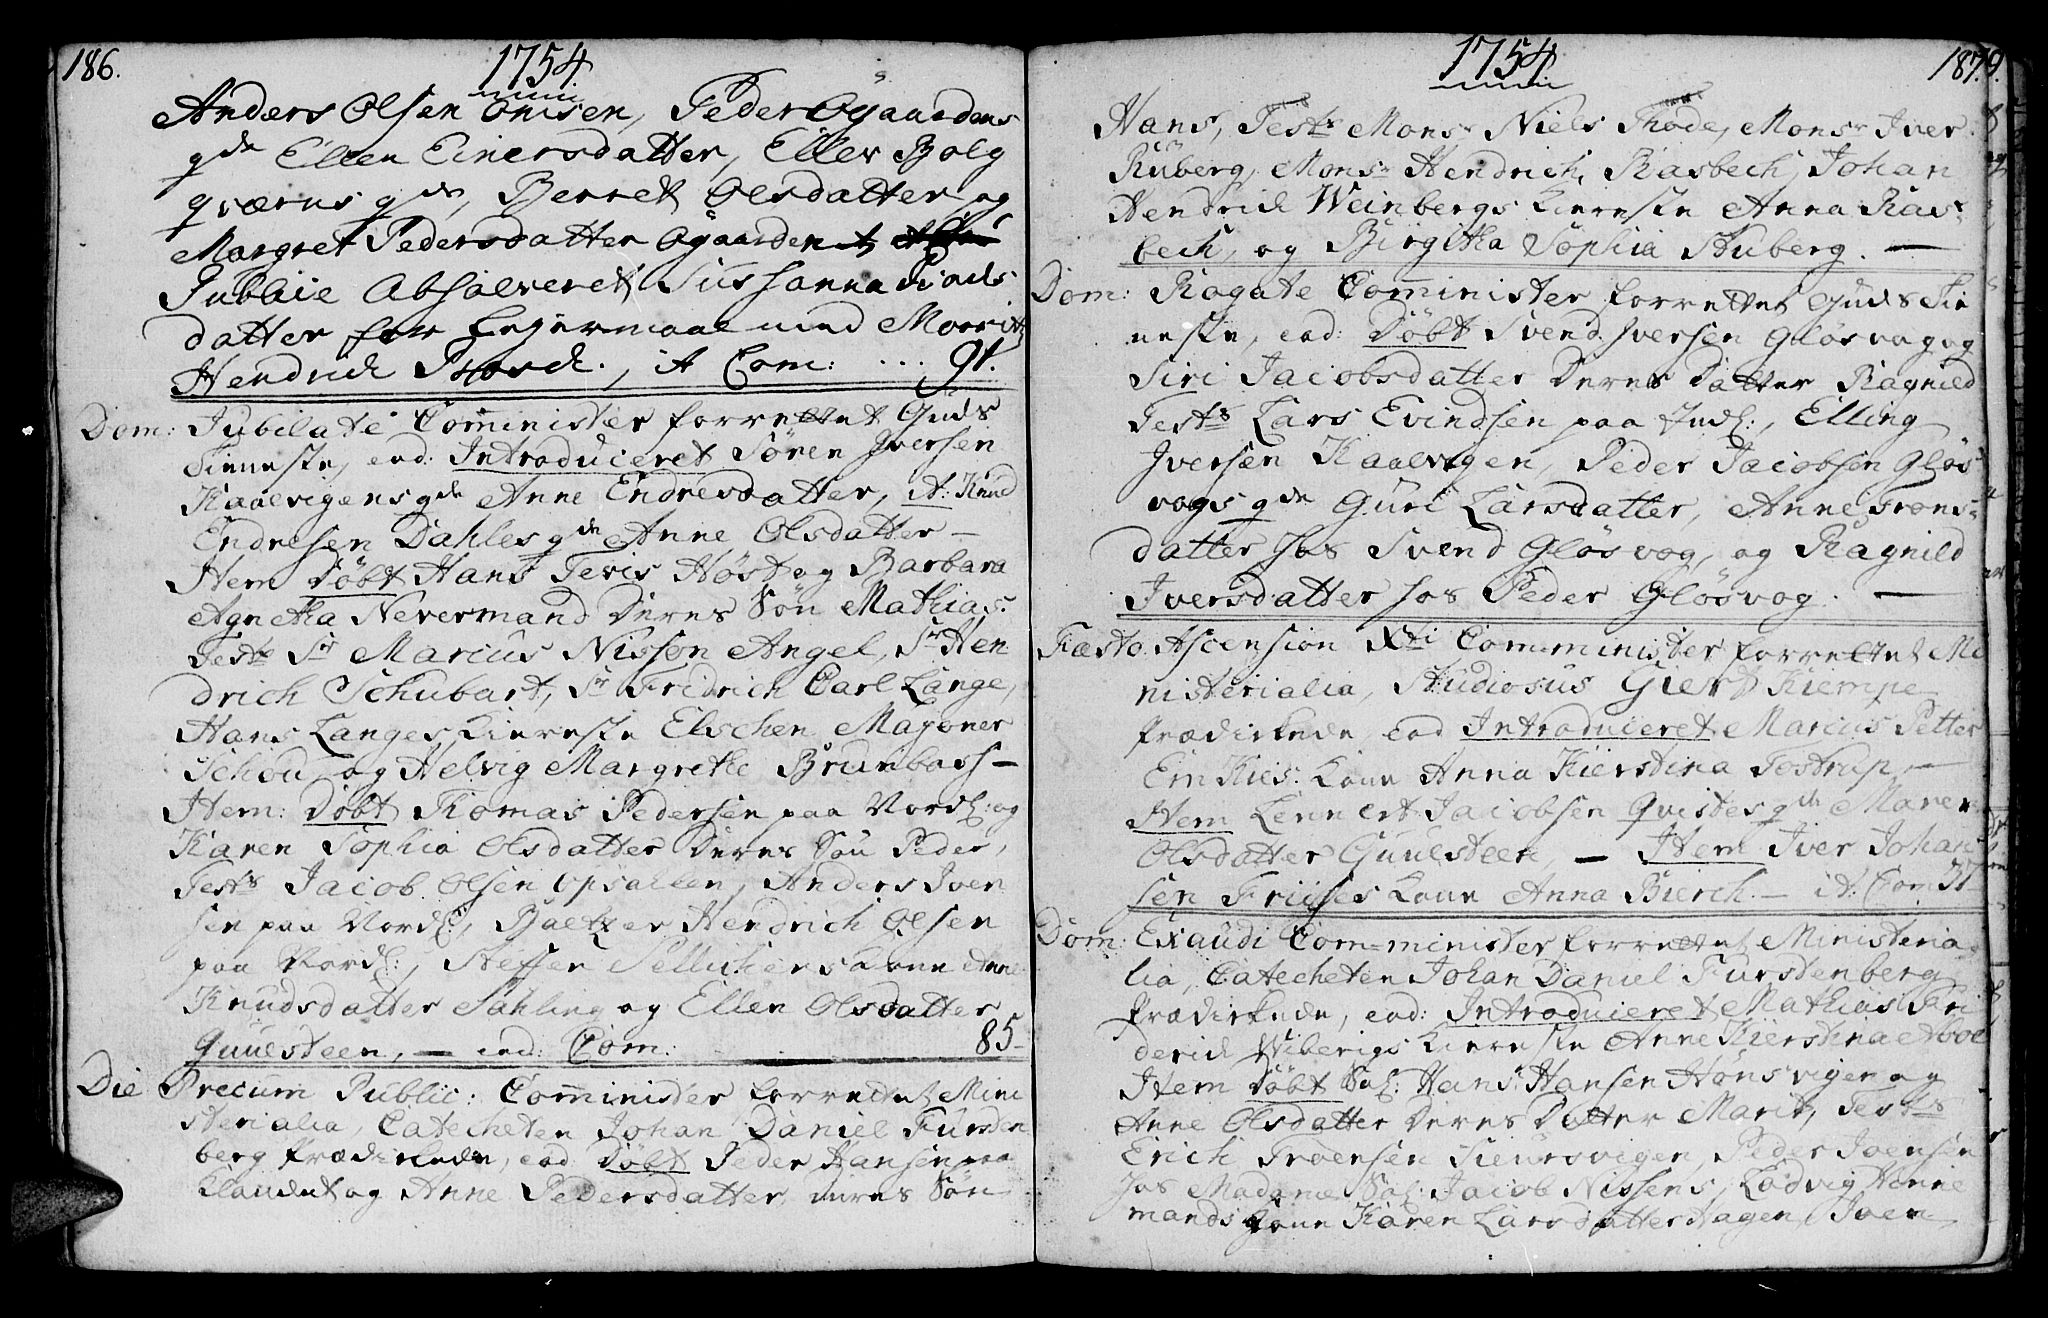 186.
1754
Anders Olsen Onisen, Peder Ögaardens
qde Ellen Einersdatter, Eller Bolg
qværns qde, Berret Olsdatter og
Margret Pedersdatter Ögaarden
Public Absolveret Sussanna
datter for Lejermaal med Moorits
Hendrich, it Com: ... 91.
Dom: Jubilate Comminister forrettet Guds
Tieneste, eod: Introduceret Sören Iversen
Kaalvigens qde Anne Endresdatter, it: Knud
Endresen Dahles qde Anne Olsdatter –
Item Döbt Hans Tevis Höst og Barbara
Agnetha Nevermand Deres Sön Mathias.
Teste Sr Marcus Nisson Angel, Sr Hen
drich Schubart, Sr Fridrich Carl Lange,
Hans Langes Kiereste Elschen Magöner
Schou, og Helvig Margrethe Brunbass –
Item: Döbt Thomas Pedersen paa Nordl: og
Karen Sophia Olsdatter Deres Sön Peder,
Tests Jacob Olsen Opsallen, Anders Iven
sen paa Nordl:, Baltzer Hendrich Olsen
paa Nordl:, Steffen Sellichers Kone Anne
Knudsdatter Sahling og Ellen Olsdatter
Guulsteen, – eod: Com: 85–
Die Precum Public: Comminister forrettet Mini
sterialia, Catecheten Johan Daniel Fürsten
berg Prædikede, eod Döbt Peder Hansen paa
Klaudet og Anne Pedersdatter deres Sön
1754
187.
Hans, Tests Monsr Niels Thode, Monsr Iver
Ruberg, Monsr Hendrich Rasbech, Johan
Hendrich Weinbergs Kiereste Anna Ras
bech, og Birgitha Sophia Stuberg. –
Dom: Rogate Comminister forrettet Guds Tie
neste, eod: Döbt Svend Iversen Glösvog og
Siri Jacobsdatter Deres Datter Ragnild
Tests Lars Evindsen paa Indl:, Elling
Iversen Kaalvigen, Peder Jacobsen Glös
vogs qde Guri Larsdatter, Anne Trons-
datter hos Svend Glösvog, og Ragnild
Iversdatter hos Peder Glösvog. –
Fæsto Ascension Xti Comminister forrettet Mi
nisterialia, Studiosus Giert Kiempe
Prædikede, eod Introduceret Marcus Petter
Em Kies: Kone Anna Kierstina Tostrup, –
Item Lennert Jacobsen Qvistes qde Maren
Olsdatter Guulsteen, – Item Iver Johan
sen Friises Kone Anna Bierch. – it: Com 37–
Dom: Exaudi Com-minister forrettet Ministeria
lia, Catecheten Johan Daniel Fürstenberg
Prædikede, eod: Introduceret Mathias Fri
derich Wibergs Kiereste Anne Kierstina
Item Döbt Sal: Hans Hansen Hönsvigen og
Anne Olsdatter Deres Datter Marit, Tests
Erich Troensen Sieursvigen, Peder Joensen
hos Madame Sal: Jacob Nissens, Ladvig Henne
mands Kone Karen Larsdatter Hagen, Iven